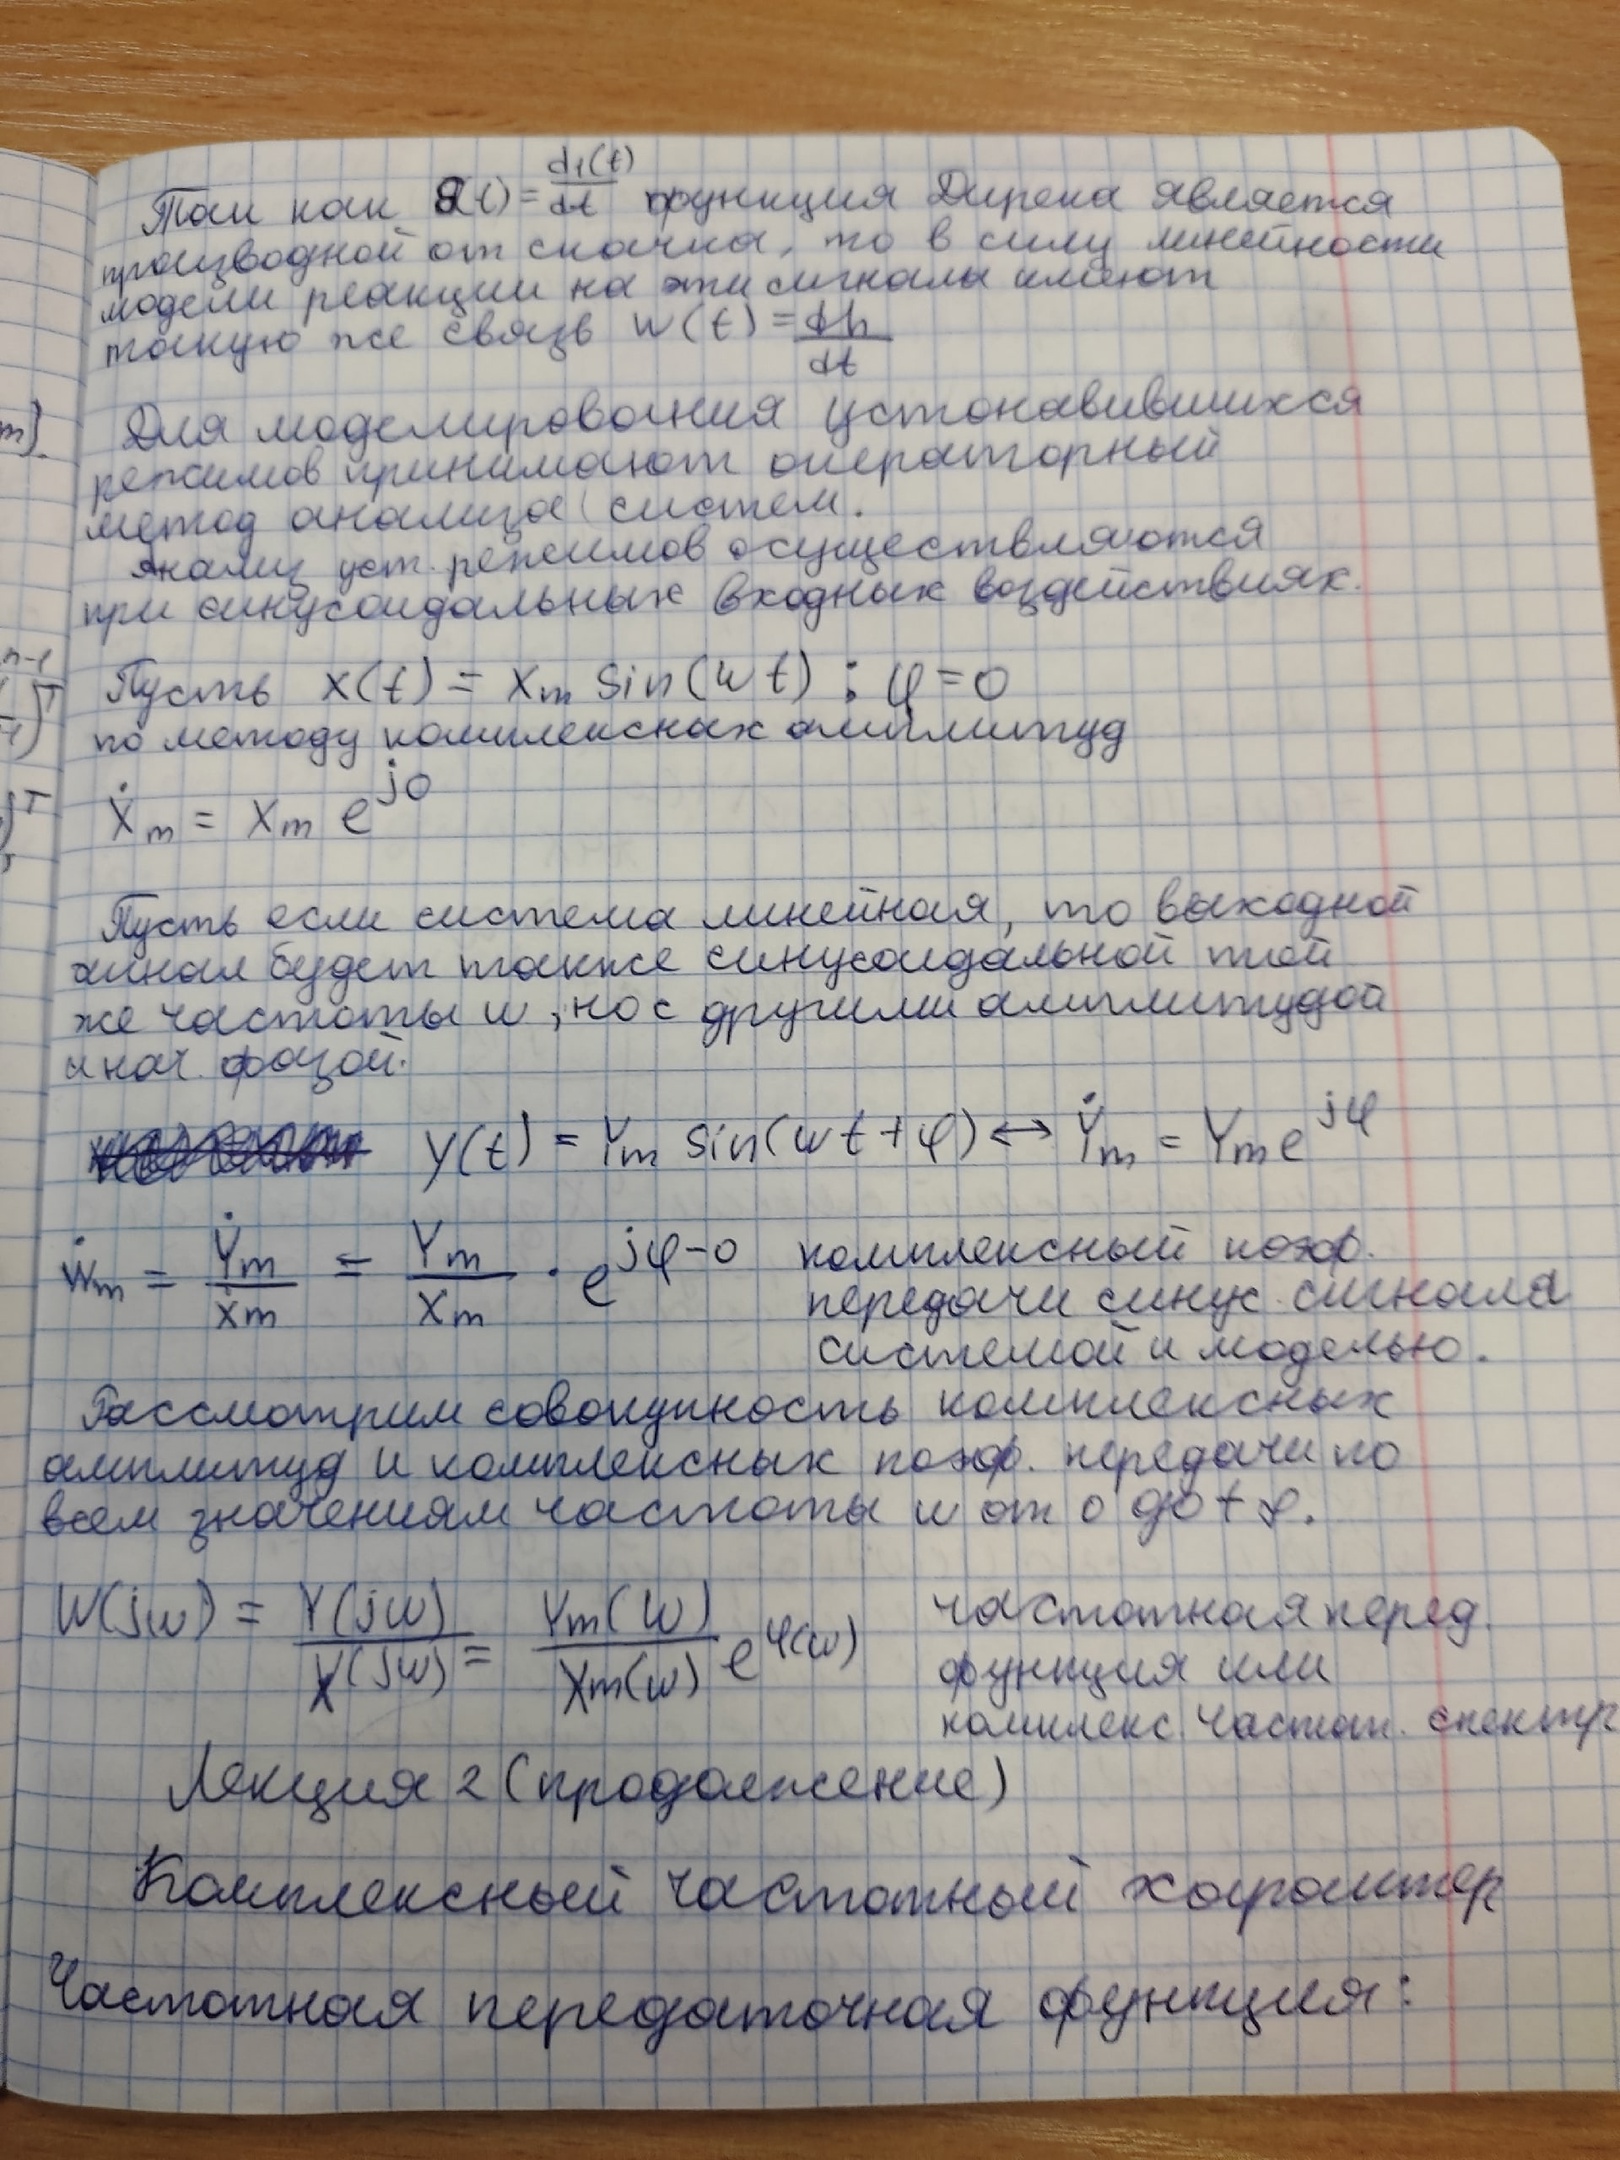 Так как δ(t) = d1(t)/dt функция Дирека является
производной от скачка, то в силу линейности
модели реакции на эти сигналы имеют
такую же связь w(t) = dh/dt
Для моделировония устонавившихся
режимов принимают операторный
метод анализа систем.
Анализ уст. режимов осуществляются
при синусоидальных входных воздействиях.
Пусть x(t) = Xm sin(wt) ; φ=0
по методу комплексных амплитуд
Ẋm = Xm e^j0
Пусть если система линейная, то выходной
синал будет также синусоидальной той
же частоты w, но с другими амплитудой
и нач. фазой.
y(t) = Ym sin(wt+φ) ↔ Ẏm = Ym e^jφ
Ẇm = Ẏm/Ẋm = Ym/Xm · e^jφ-0 комплексный коэф.
передачи синус. сигнала
системой и моделью.
Рассмотрим совокупность комплексных
амплитуд и комплексных коэф. передачи по
всем значениям частоты w от 0 до +
W(jw) = Y(jw)/X(jw) = Ym(w)/Xm(w) e^φ(w) частотная перед.
функция или
комплекс. частот. спектр
Лекция 2 (продолжение)
Комплексный частотный характер
Частотная передаточная функция: